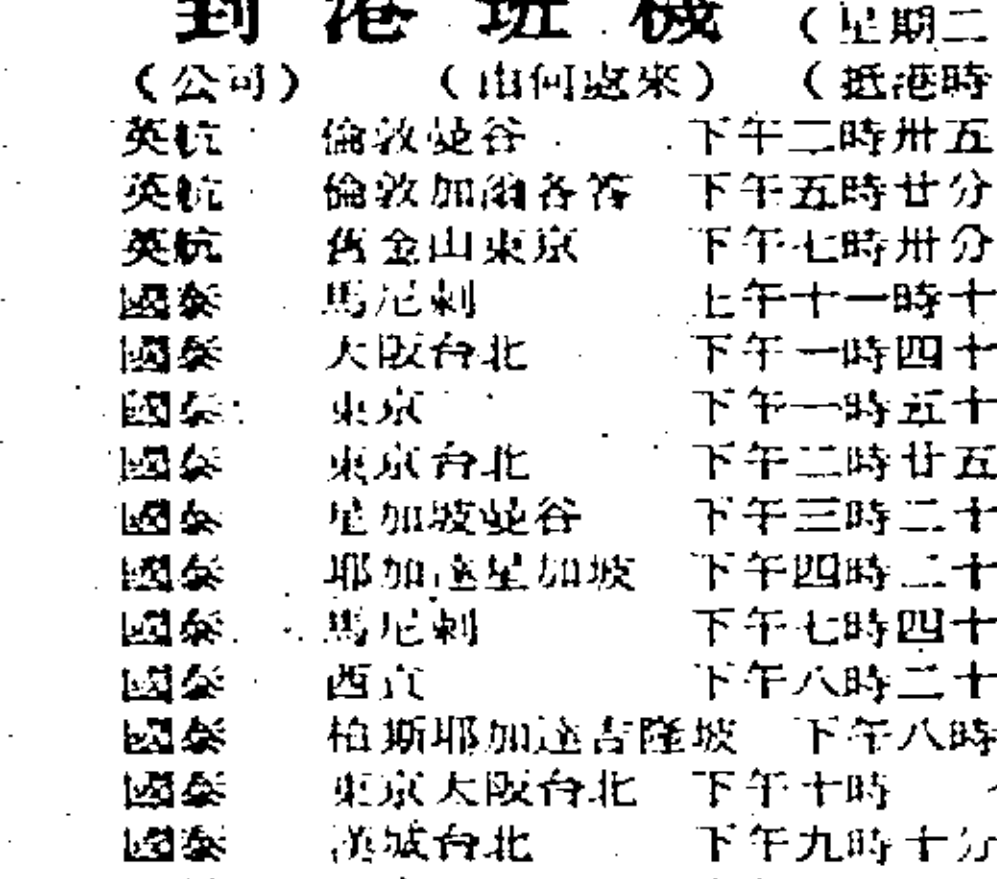 到港班機 （星期二
（公司） （由何處來） （抵港時
英航 倫敦曼谷 下午二時卅五
英航 倫敦加爾各答 下午五時廿分
英航 舊金山東京 下午七時卅分
國泰 馬尼剌 上午十一時十
國泰 大阪台北 下午一時四十
國泰 東京 下午一時五十
國泰 東京台北 下午二時廿五
國泰 星加坡曼谷 下午三時二十
國泰 耶加達星加坡 下午四時二十
國泰 馬尼剌 下午七時四十
國泰 西貢 下午八時二十
國泰 柏斯耶加達吉隆坡 下午八時
國泰 東京大阪台北 下午十時
國泰 漢城台北 下午九時十分